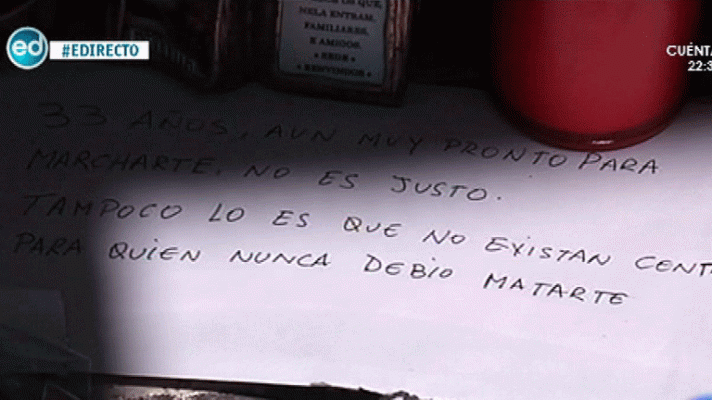 ed
#EDIRECTO
CUÉNTA
22:3
NELA ENTRAM,
FAMILIARES,
E AMIGOS.
33 AÑOS, AUN MUY PRONTO PARA
MARCHARTE, NO ES JUSTO.
TAMPOCO LO ES QUE NO EXISTAN CENT
PARA QUIEN NUNCA DEBIO MATARTE